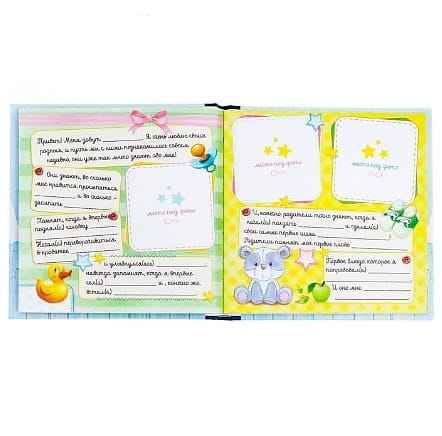 Привет! Меня зовут ____________. Я очень люблю своих
родных, и пусть мы с ними познакомились совсем
недавно, они уже так много знают обо мне!
Они знают, во сколько
мне нравится просыпаться
____________ и во сколько
засыпать ____________
место под фото
Помнят, когда я впервые
поднял(а) головку ____________
Начал(а) переворачиваться
в кроватке ____________
____________ и улыбнулся(ась) ____________
навсегда запомнят, когда я впервые
сел(а) ____________ и, конечно же,
встал(а) ____________
место под фото
место под фото
И, конечно, родители точно знают, когда я
начал(а) ползать ____________ и сделал(а)
свои самые первые шаги ____________
Родители помнят мое первое слово ____________
Первое блюдо, которое я
попробовал(а) ____________
И оно мне ____________